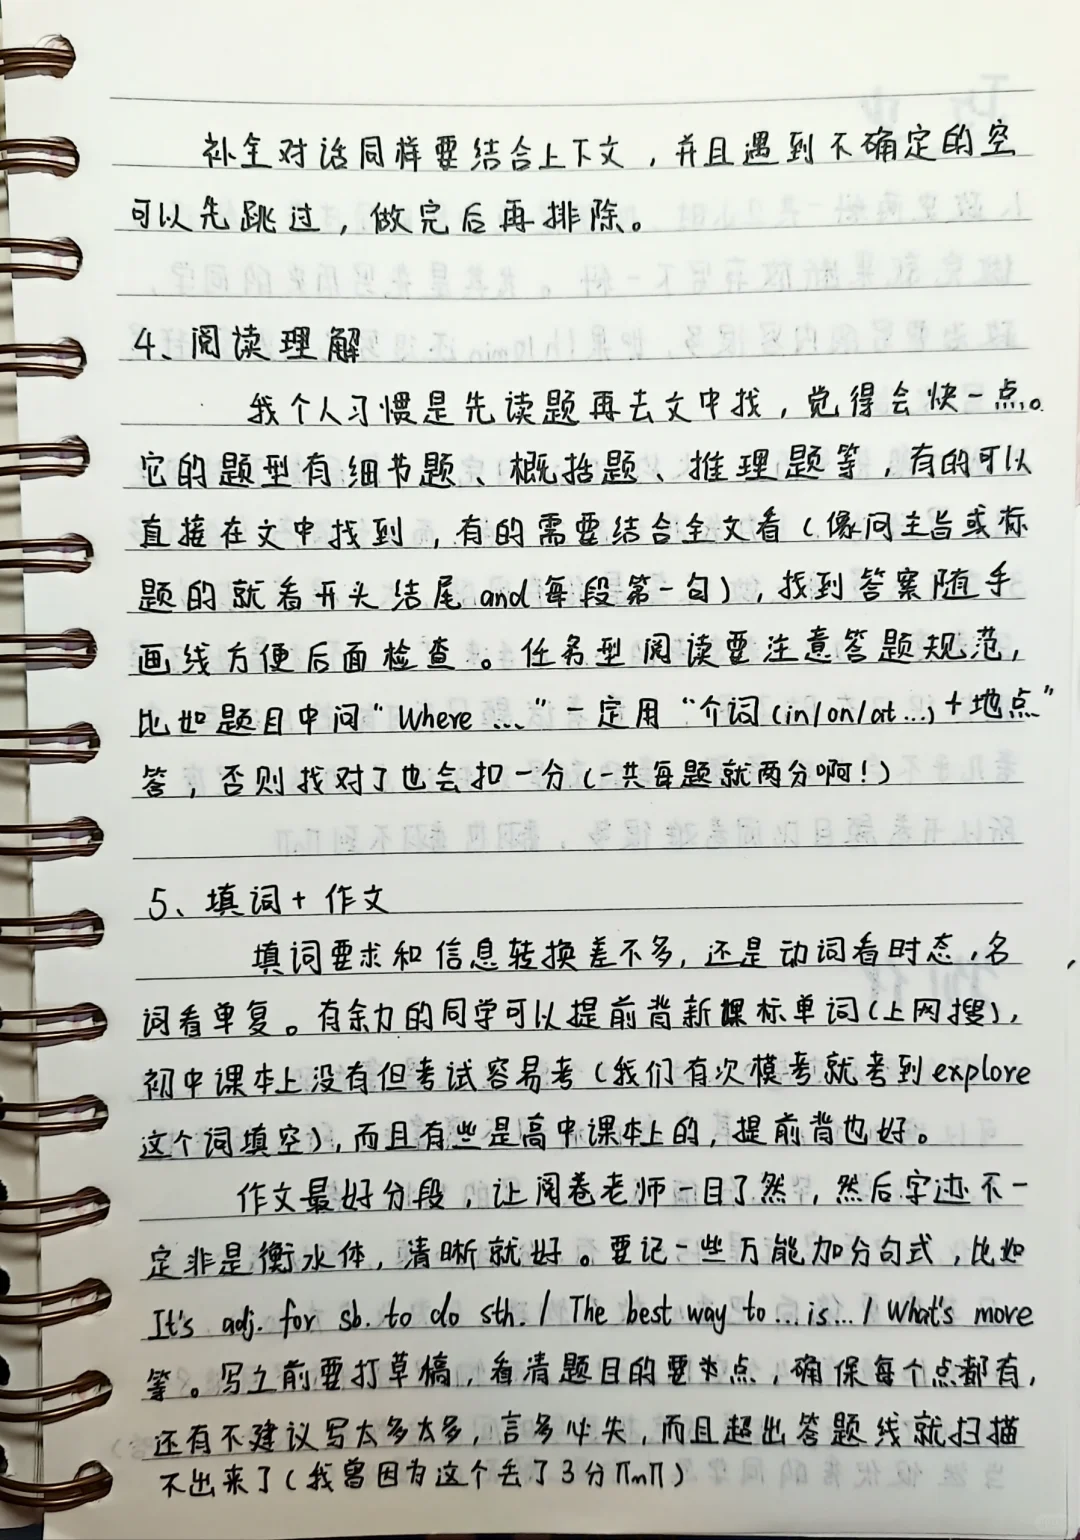 补全对话同样要结合上下文，并且遇到不确定的空
可以先跳过，做完后再排除。
4、阅读理解
我个人习惯是先读题再去文中找，觉得会快一点。
它的题型有细节题、概括题、推理题等，有的可以
直接在文中找到，有的需要结合全文看（像问主旨或标
题的就看开头结尾and每段第一句），找到答案随手
画线方便后面检查。任务型阅读要注意答题规范，
比如题目中问“Where …”一定用“介词(in/on/at…)+地点”
答，否则找对了也会扣一分（一共每题就两分啊！）
5、填词+作文
填词要求和信息转换差不多，还是动词看时态，名
词看单复。有余力的同学可以提前背新课标单词（上网搜），
初中课本上没有但考试容易考（我们有次模考就考到explore
这个词填空），而且有些是高中课本上的，提前背也好。
作文最好分段，让阅卷老师一目了然，然后字迹不一
定非是衡水体，清晰就好。要记一些万能加分句式，比如
It's adj. for sb. to do sth. / The best way to … is … / What's more
等。写之前要打草稿，看清题目的要点，确保每个点都有，
还有不建议写太多太多，言多必失，而且超出答题线就扫描
不出来了（我曾因为这个丢了3分ПmП）